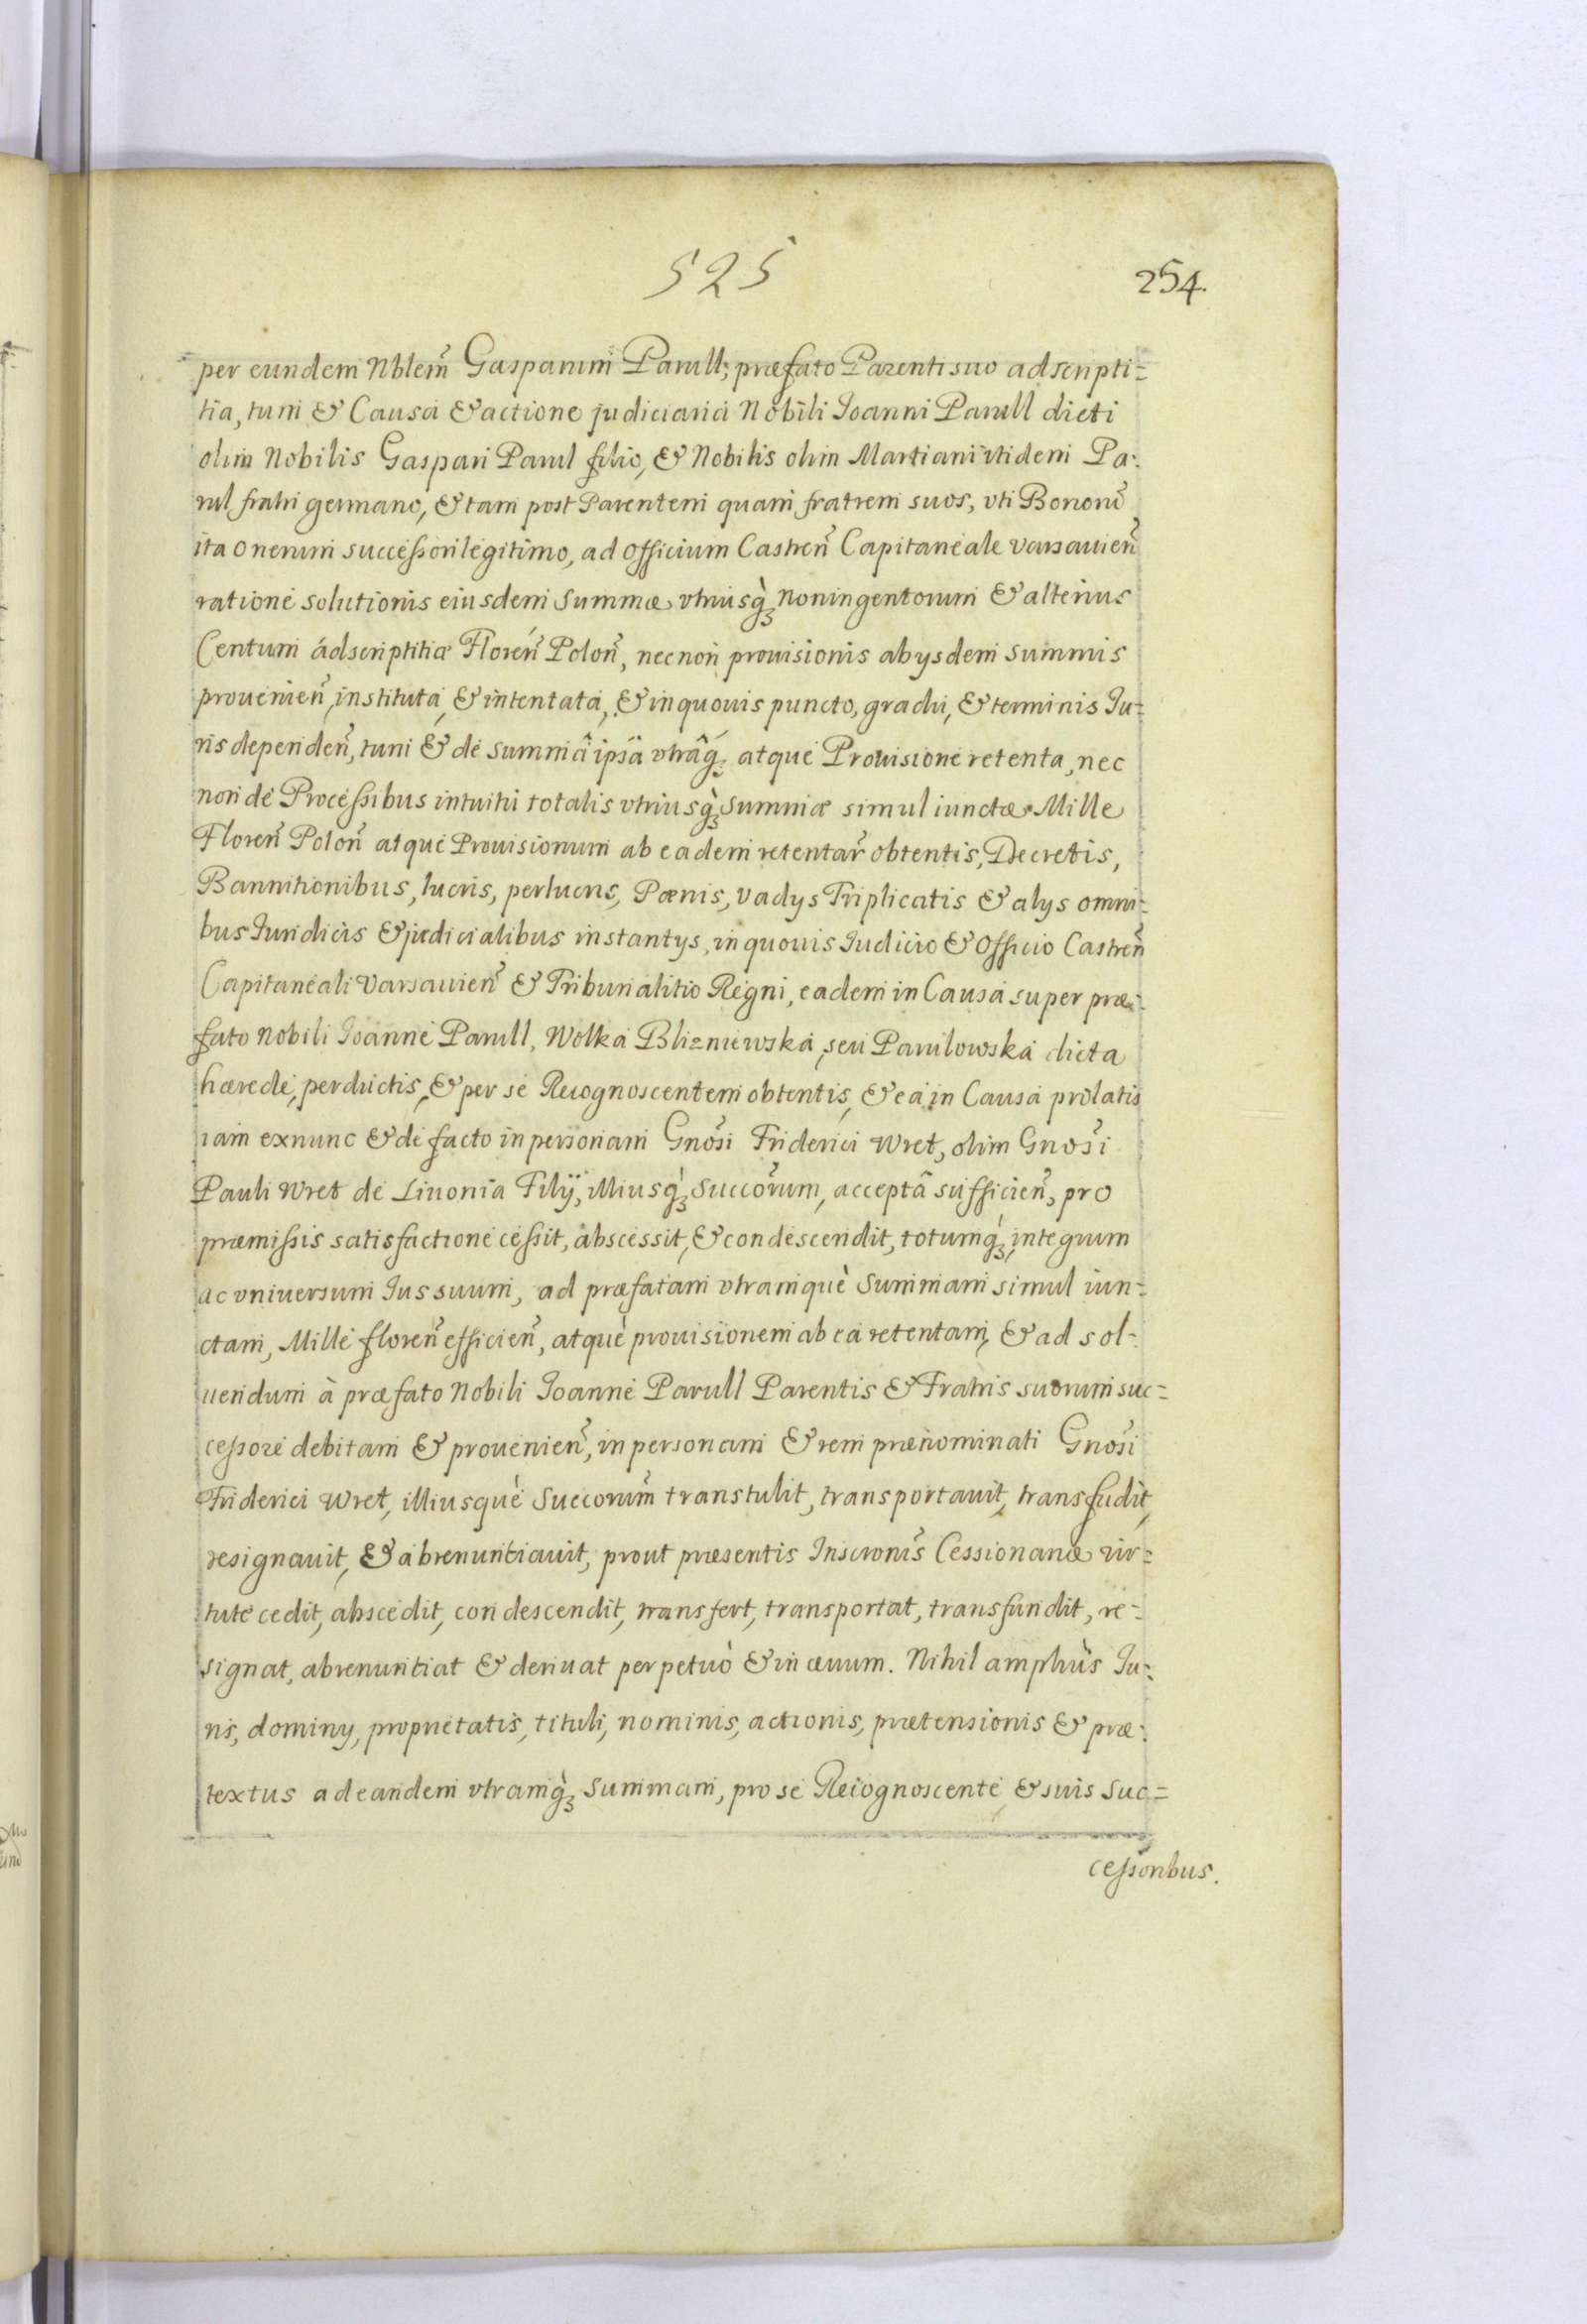 525
254.
per eundem Nblem̃ Gasparum Parull, præfato Parenti suo adscripti=
tia, tum & Causa & actione judiciaria Nobili Joanni Parull dicti
olim Nobilis Gaspari Parul filio, & Nobilis olim Martiani itidem Pa=
rul fratri germano, & tam post Parentem quam fratrem suos, vti Bonorũ
ita onerum successori legitimo, ad Officium Castreñ Capitaneale Varsauieñ
ratione solutionis eiusdem Summæ vtriusq̀ꝫ Noningentorum & alterius
Centum ádscriptitiæ Floreñ Poloñ, necnon prouisionis ab ysdem summis
prouenieñ, instituta, & intentata, & in quouis puncto, gradu, & terminis Ju=
ris dependeñ, tum & de summâ ipsâ vtrâq́ꝫ atque Prouisione retenta, nec
non de Processibus intuitu totalis vtriusq̀ꝫ Summæ simul iunctæ Mille
Floreñ Poloñ atque Prouisionum ab eadem retentar̃ obtentis, Decretis,
Bannitionibus, lucris, perlucris, Pœnis, Vadys Triplicatis & alys omni=
bus Juridicis & judicialibus instantys, in quouis Judicio & Officio Castreñ
Capitaneali Varsauieñ & Tribunalitio Regni, eadem in Causa super præ=
fato Nobili Joanne Parull, Wolka Blizniewska, seu Parulowska dicta
hærede, perductis, & per se Recognoscentem obtentis, & ea in Causa prolatis
iam exnunc & de facto in personam Gnõsi Friderici Wret, olim Gnosĩ
Pauli Wret de Liuonia Filÿ, illiusq̀ꝫ Succõrum, acceptâ sufficieñ, pro
præmissis satisfactione cessit, abscessit, & condescendit, totumq́ꝫ, integrum
ac vniuersum Jus suum, ad præfatam vtramquè Summam simul iun=
ctam, Mille floreñ efficieñ, atquè prouisionem ab ea retentam, & ad sol=
uendum à præfato Nobili Joanne Parull Parentis & Fratris suorum suc=
cessore debitam & prouenieñ, in personam & rem prænominati Gnosĩ
Friderici Wret, illiusquè Succorum̃ transtulit, transportauit, transfudit,
resignauit, & abrenuntiauit, prout præsentis Inscronis̃ Cessionariæ vir=
tute cedit, abscedit, condescendit, transfert, transportat, transfundit, re=
signat, abrenuntiat & deriuat perpetuò & in æuum. Nihil ampliùs Ju=
ris, dominy, proprietatis, tituli, nominis, actionis, prætensionis & præ=
textus ad eandem vtramq̀ꝫ Summam, pro se Recognoscente & suis suc=
cessoribus.